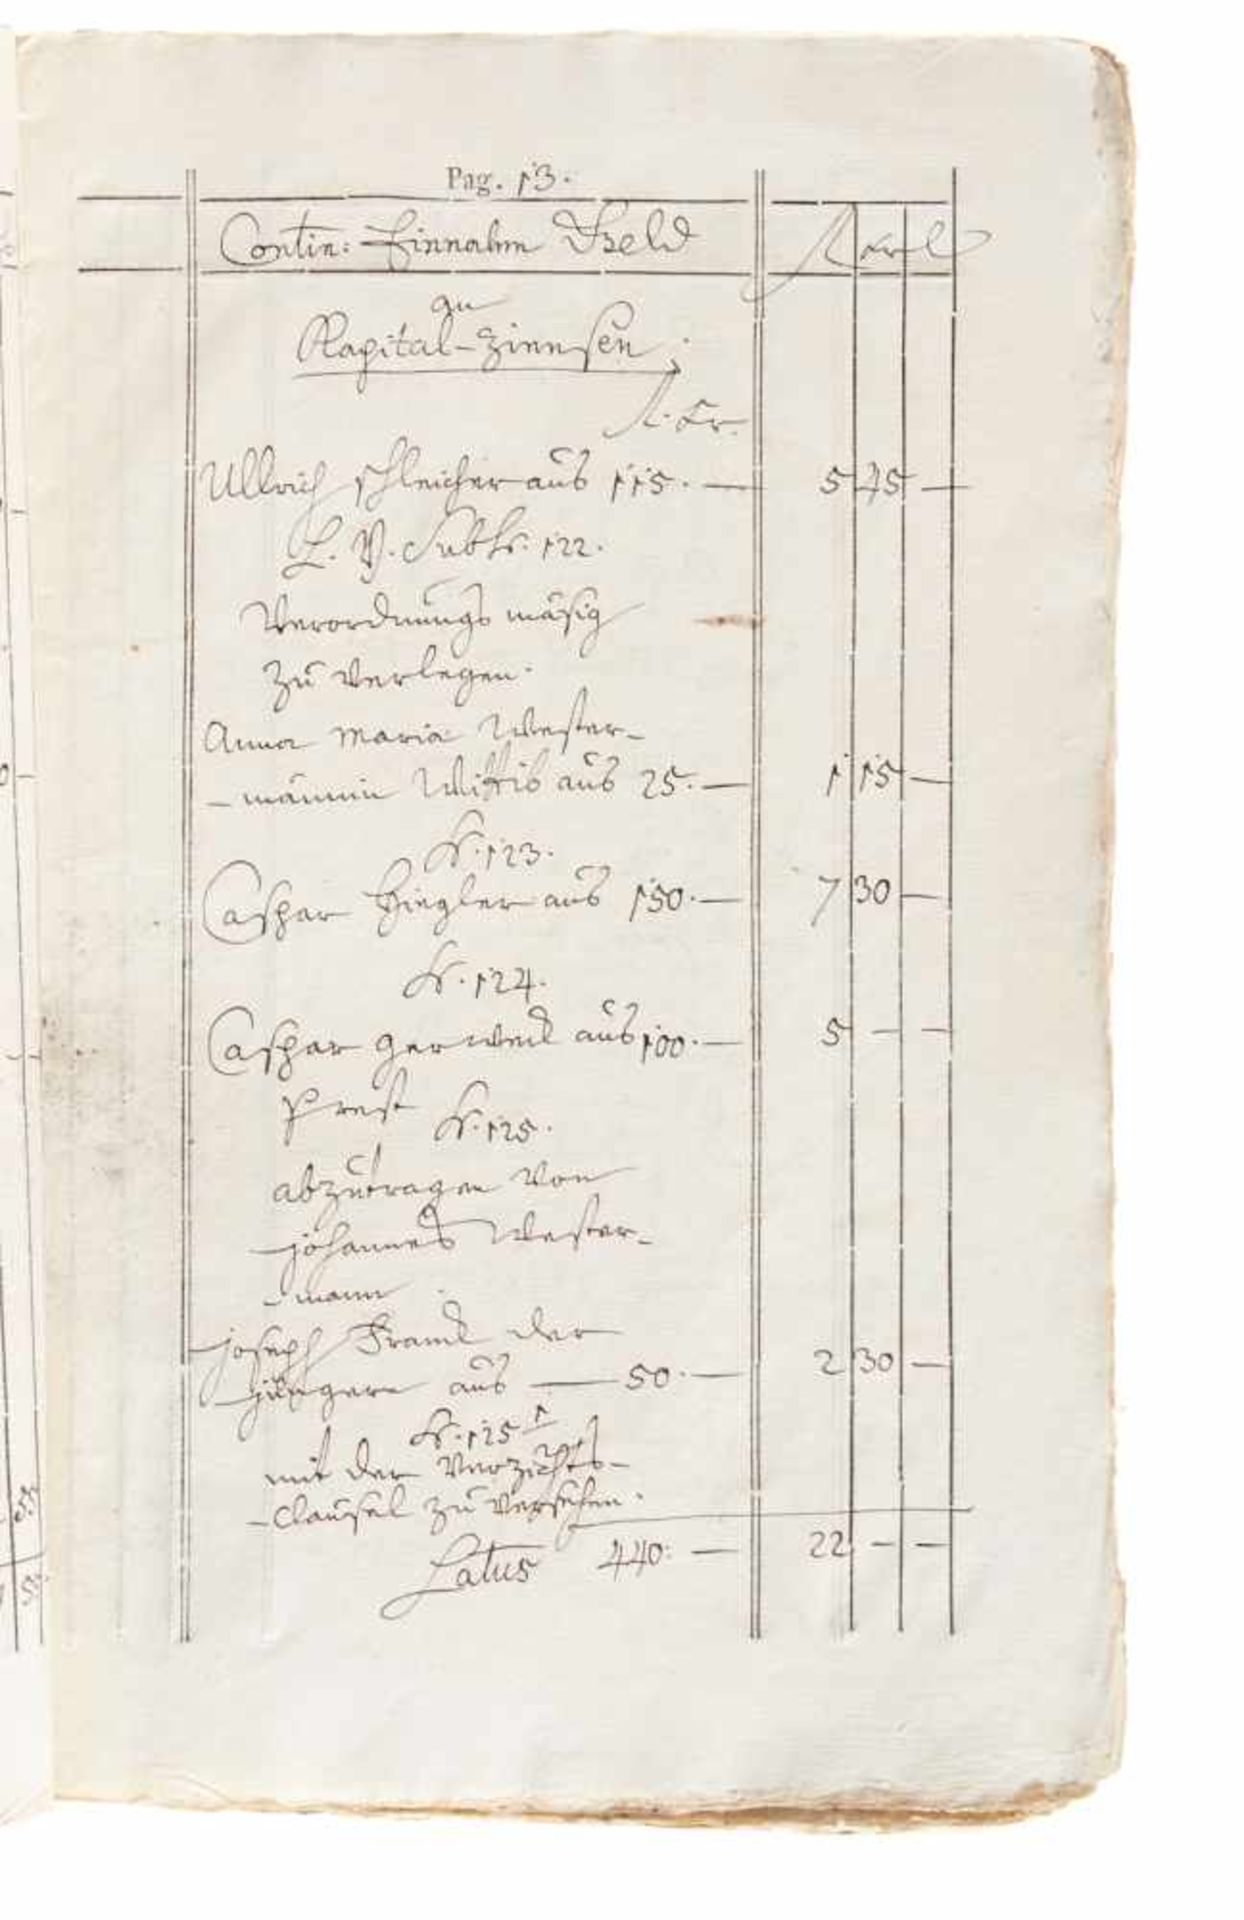 Pag. 13.
Contin: Einnahm Geld
an
Kapital-Zinnsen;
fl. xr.
Ullrich Schleicher aus 115. — 5 45 —
L. V. Sub N. 122.
Verordnungs mäsig
zu verlegen.
Anna Maria Wester-
-männin Wittib aus 25. — 1 15 —
N. 123.
Caspar Ziegler aus 150. — 7 30 —
N. 124.
Caspar Gerweck aus 100. — 5 — —
Prest N. 125.
abzutragen von
Johannes Wester-
-mann
Joseph Franck der
jüngere aus — 50. — 2 30 —
N. 125 1
mit der Verzichts-
-Clausel zu versehen.
Latus 440: — 22 — —